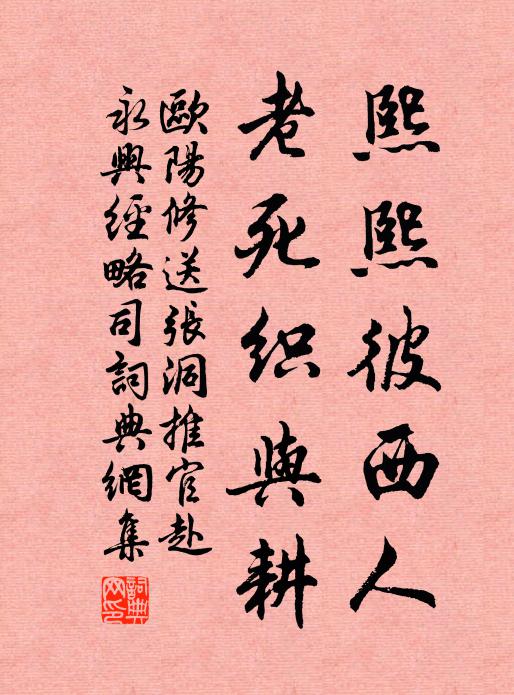 熙熙彼西人
老死织與耕
歐陽修送張洞推官赴
永興經略司詞典網集
詞典网印